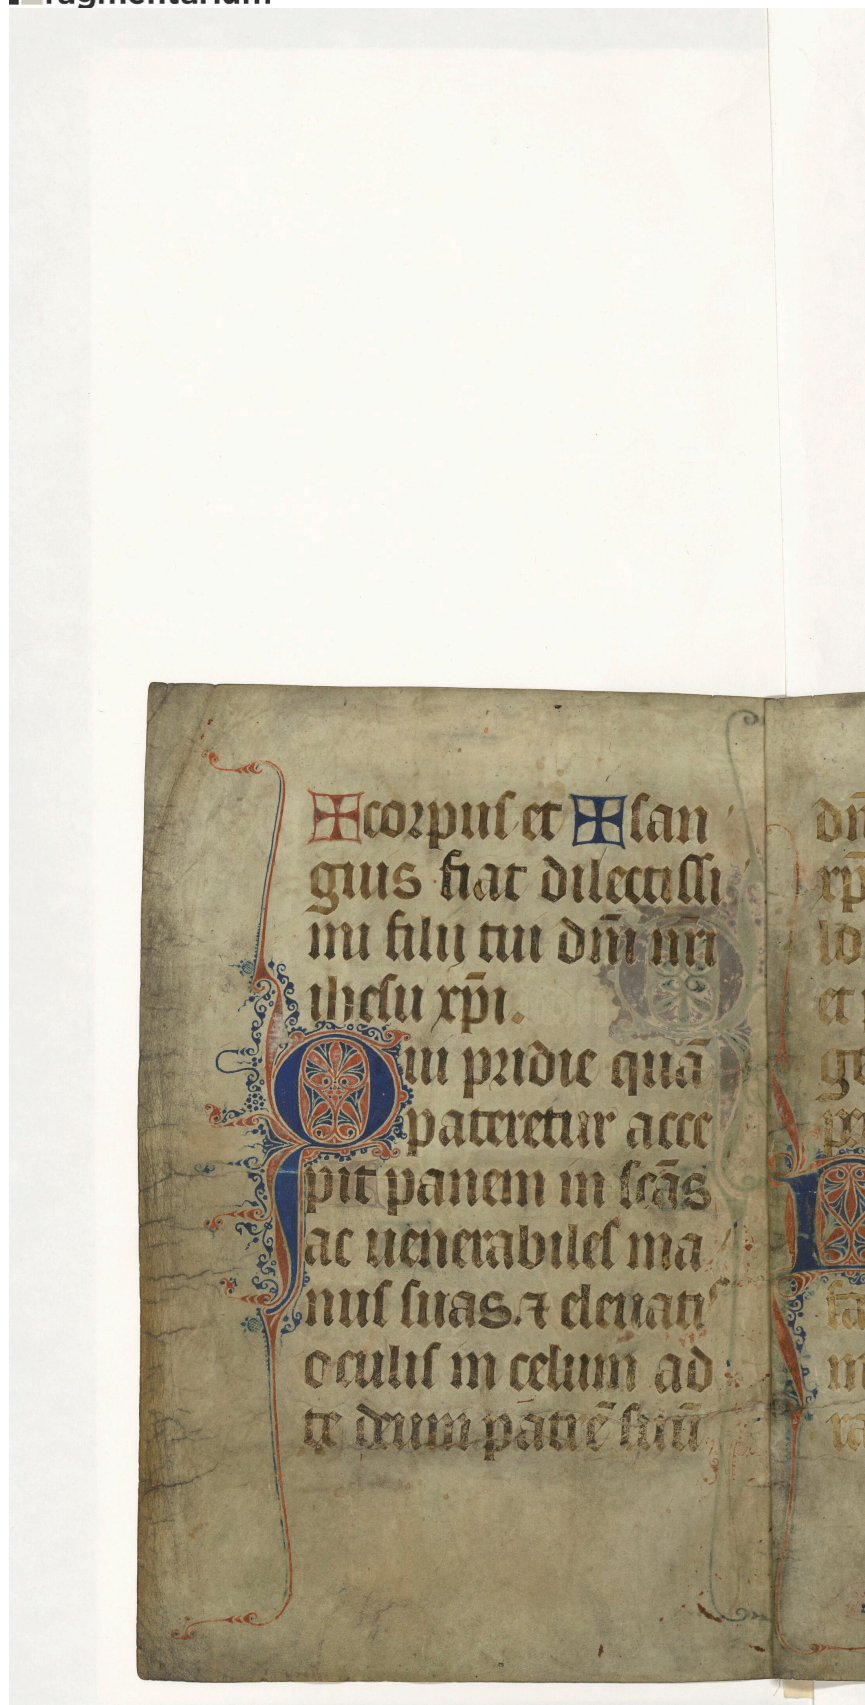 ragmentarium
✠ corpus et ✠ san
guis fiat dilectissi
mi filij tui dn̄i nr̄i
ihesu xp̄i.
Qui pridie quā
pateretur acce
pit panem in scās
ac uenerabiles ma
nus suas. ⁊ eleuatis
oculis in celum ad
te deum patrē suū
dn̄
xp̄
lo
et
gr